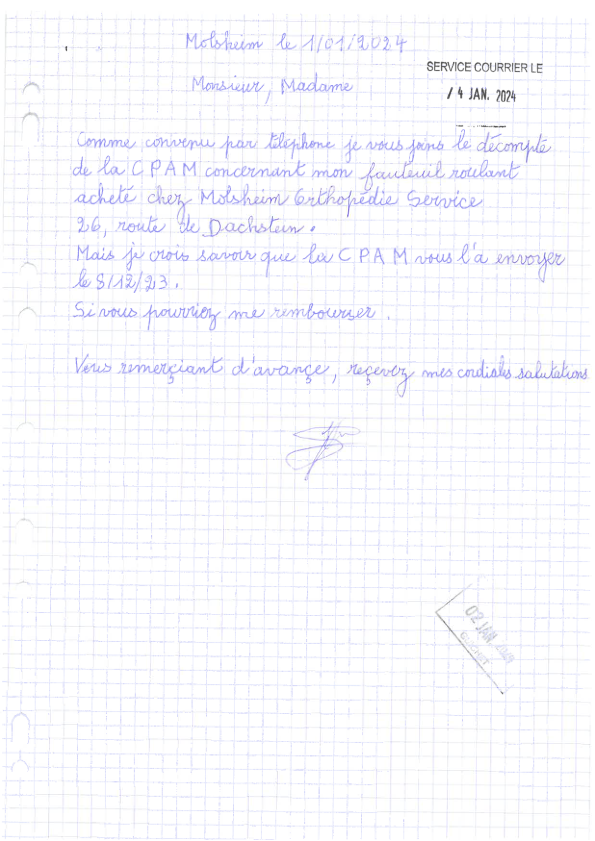 Molsheim le 1/01/2024
SERVICE COURRIER LE
/ 4 JAN. 2024
Monsieur, Madame
Comme convenu par téléphone je vous joins le décompte
de la CPAM concernant mon fauteuil roulant
acheté chez Molsheim Orthopédie Service
26, route de Dachstein.
Mais je crois savoir que la CPAM vous l'a envoyer
le 8/12/23.
Si vous pourriez me rembourser.
Vous remerçiant d'avançe, reçevez mes cordiales salutations
02 JAN 2024